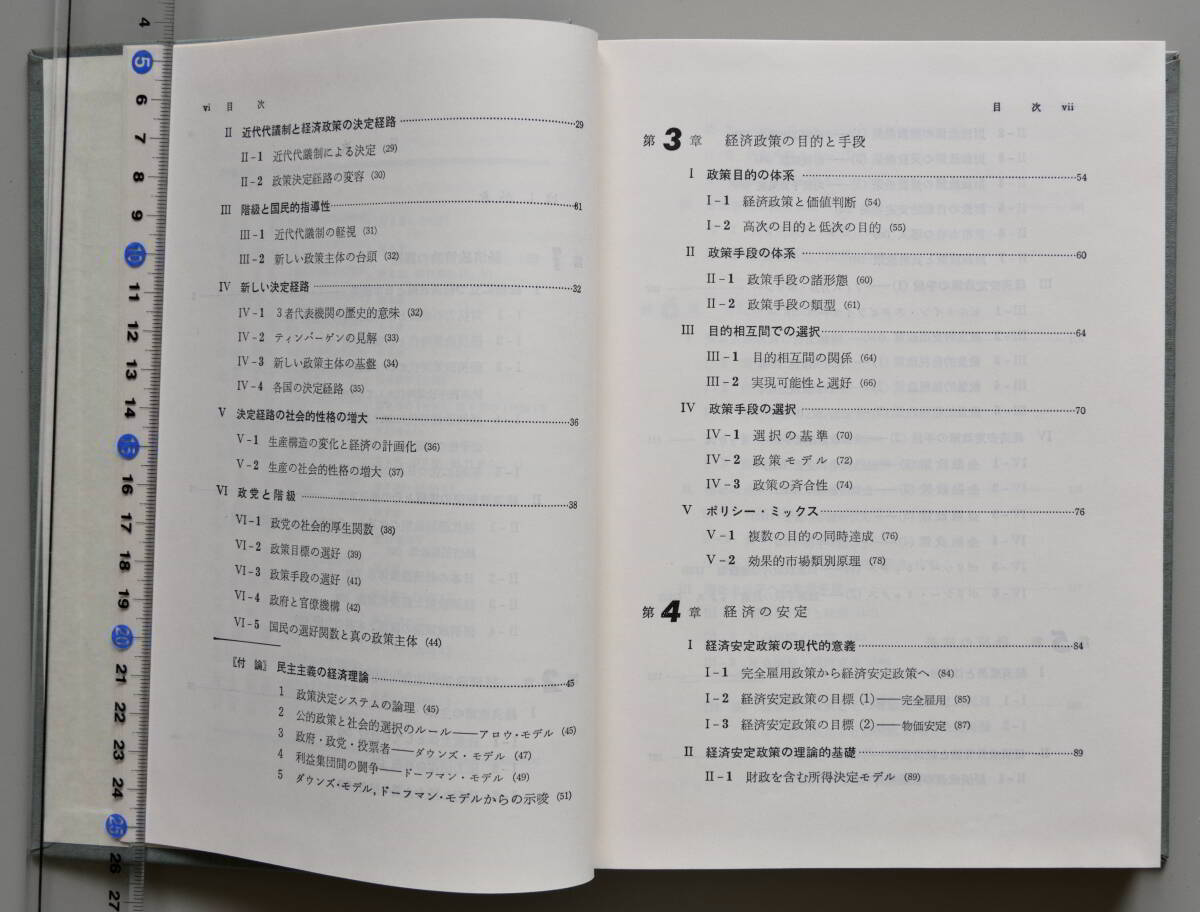 vi 目 次
II 近代代議制と経済政策の決定経路 29
II-1 近代代議制による決定 (29)
II-2 政策決定経路の変容 (30)
III 階級と国民的指導性 31
III-1 近代代議制の軽視 (31)
III-2 新しい政策主体の台頭 (32)
IV 新しい決定経路 32
IV-1 3者代表機関の歴史的意味 (32)
IV-2 ティンバーゲンの見解 (33)
IV-3 新しい政策主体の基盤 (34)
IV-4 各国の決定経路 (35)
V 決定経路の社会的性格の増大 36
V-1 生産構造の変化と経済の計画化 (36)
V-2 生産の社会的性格の増大 (37)
VI 政党と階級 38
VI-1 政党の社会的厚生関数 (38)
VI-2 政策目標の選好 (39)
VI-3 政策手段の選好 (41)
VI-4 政府と官僚機構 (42)
VI-5 国民の選好関数と真の政策主体 (44)
〖付 論〗 民主主義の経済理論 45
1 政策決定システムの論理 (45)
2 公的政策と社会的選択のルール——アロウ・モデル (45)
3 政府・政党・投票者——ダウンズ・モデル (47)
4 利益集団間の闘争——ドーフマン・モデル (49)
5 ダウンズ・モデル,ドーフマン・モデルからの示唆 (51)
目 次 vii
第3章 経済政策の目的と手段
I 政策目的の体系 54
I-1 経済政策と価値判断 (54)
I-2 高次の目的と低次の目的 (55)
II 政策手段の体系 60
II-1 政策手段の諸形態 (60)
II-2 政策手段の類型 (61)
III 目的相互間での選択 64
III-1 目的相互間の関係 (64)
III-2 実現可能性と選好 (66)
IV 政策手段の選択 70
IV-1 選択の基準 (70)
IV-2 政策モデル (72)
IV-3 政策の斉合性 (74)
V ポリシー・ミックス 76
V-1 複数の目的の同時達成 (76)
V-2 効果的市場類別原理 (78)
第4章 経済の安定
I 経済安定政策の現代的意義 84
I-1 完全雇用政策から経済安定政策へ (84)
I-2 経済安定政策の目標 (1)——完全雇用 (85)
I-3 経済安定政策の目標 (2)——物価安定 (87)
II 経済安定政策の理論的基礎 89
II-1 財政を含む所得決定モデル (89)
4
5
6
7
8
9
10
11
12
13
14
15
16
17
18
19
20
21
22
23
24
25
26
27